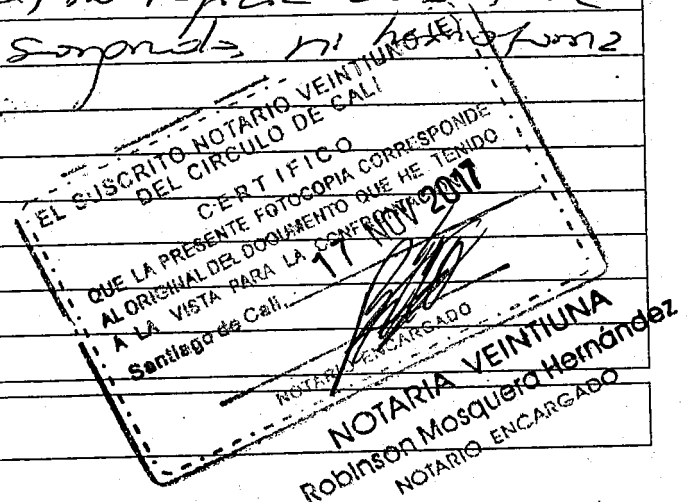 EL SUSCRITO NOTARIO VEINTIUNO (E)
DEL CIRCULO DE CALI
CERTIFICO
QUE LA PRESENTE FOTOCOPIA CORRESPONDE
AL ORIGINAL DEL DOCUMENTO QUE HE TENIDO
A LA VISTA PARA LA CONFRONTACION
17 NOV 2017
Santiago de Cali,
NOTARIO ENCARGADO
NOTARIA VEINTIUNA
Robinson Mosquera Hernández
NOTARIO ENCARGADO